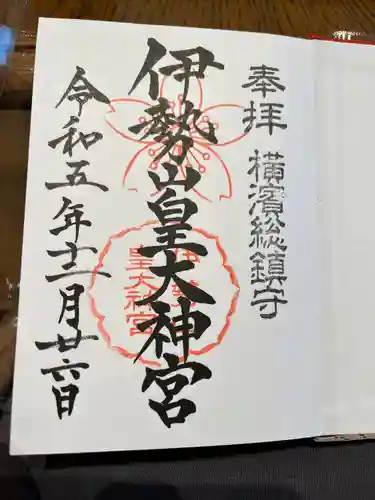 奉拝 横濱総鎮守
伊勢山皇大神宮
伊勢山
皇大神宮
令和五年十二月廿六日